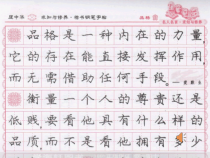 品格是一种内在的力量
它的存在能直接发挥作用
而无需借助任何手段。
衡量一个人的尊贵还是
低贱要看他具有什么样的
品质而不是看他拥有多少